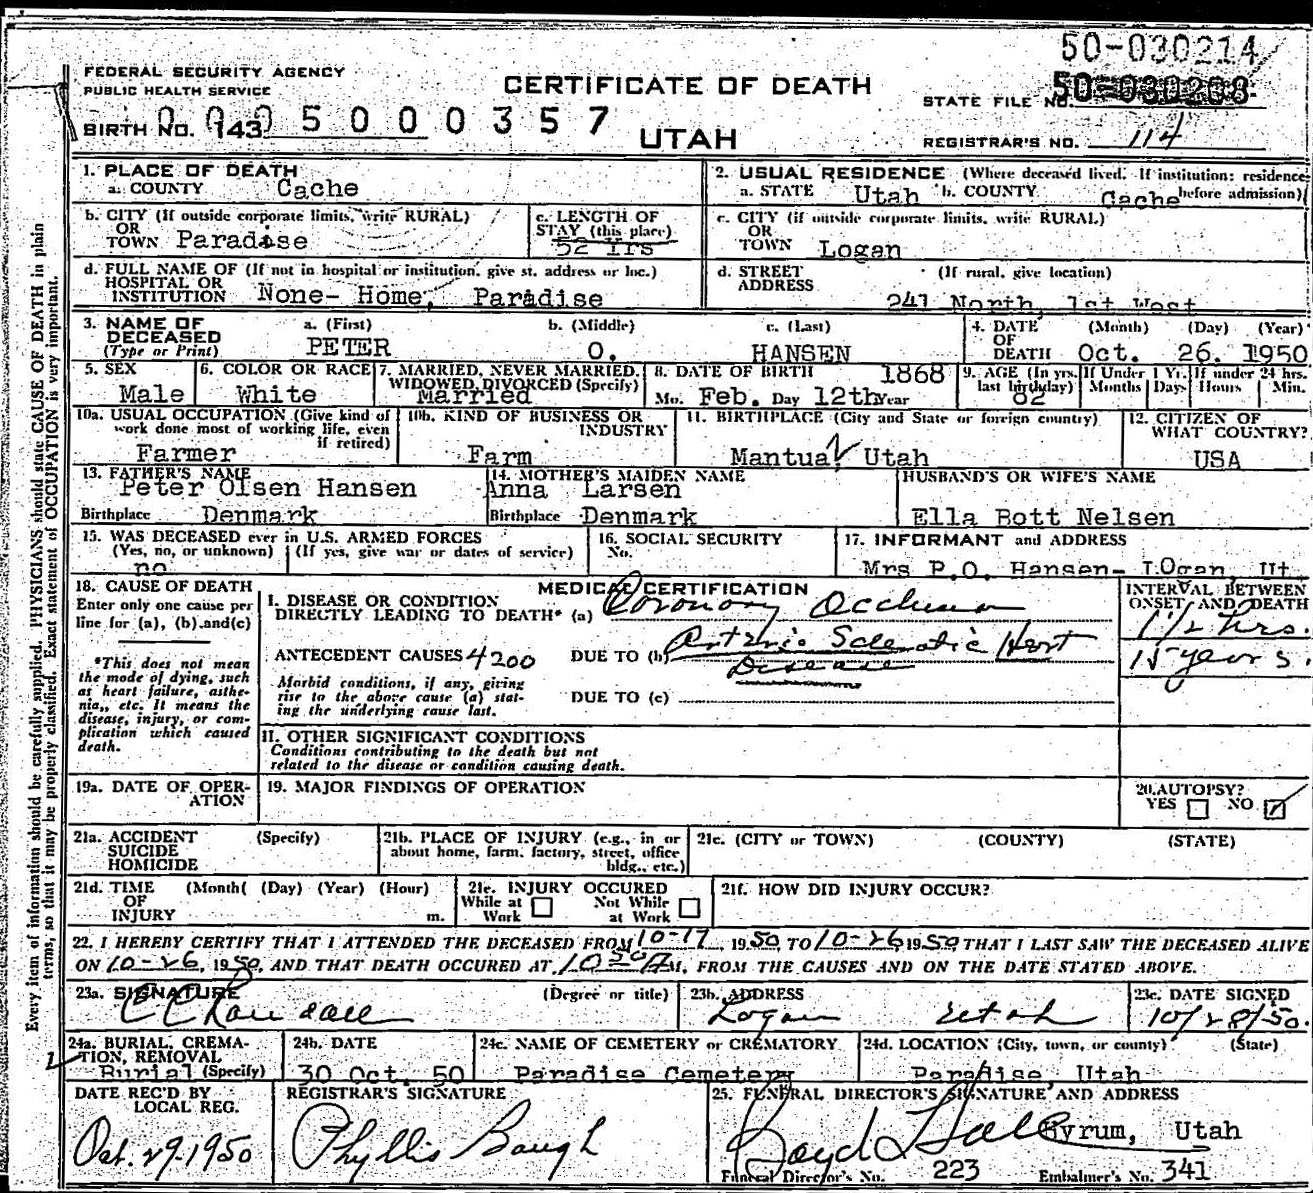 50-030214
FEDERAL SECURITY AGENCY
PUBLIC HEALTH SERVICE
CERTIFICATE OF DEATH
STATE FILE NO. 50-030208
BIRTH NO. 143 5000357
UTAH
REGISTRAR'S NO. 114
Every item of information should be carefully supplied. PHYSICIANS should state CAUSE OF DEATH in plain
terms, so that it may be properly classified. Exact statement of OCCUPATION is very important.
1. PLACE OF DEATH
a. COUNTY Cache
2. USUAL RESIDENCE (Where deceased lived. If institution: residence
a. STATE Utah b. COUNTY Cache before admission)
b. CITY (If outside corporate limits, write RURAL)
OR
TOWN Paradise
c. LENGTH OF
STAY (this place)
52 Yrs
c. CITY (if outside corporate limits, write RURAL)
OR
TOWN Logan
d. FULL NAME OF (If not in hospital or institution, give st. address or loc.)
HOSPITAL OR
INSTITUTION None- Home, Paradise
d. STREET (If rural, give location)
ADDRESS
241 North, 1st West
3. NAME OF a. (First) b. (Middle) c. (Last)
DECEASED
(Type or Print) PETER O. HANSEN
4. DATE (Month) (Day) (Year)
OF
DEATH Oct. 26. 1950
5. SEX
Male
6. COLOR OR RACE
White
7. MARRIED, NEVER MARRIED,
WIDOWED, DIVORCED (Specify)
Married
8. DATE OF BIRTH 1868
Mo. Feb. Day 12th Year
9. AGE (In yrs. last birthday) 82
If Under 1 Yr. Months Days
If under 24 hrs. Hours Min.
10a. USUAL OCCUPATION (Give kind of
work done most of working life, even
if retired)
Farmer
10b. KIND OF BUSINESS OR
INDUSTRY
Farm
11. BIRTHPLACE (City and State or foreign country)
Mantua, Utah
12. CITIZEN OF
WHAT COUNTRY?
USA
13. FATHER'S NAME
Peter Olsen Hansen
Birthplace Denmark
14. MOTHER'S MAIDEN NAME
Anna Larsen
Birthplace Denmark
HUSBAND'S OR WIFE'S NAME
Ella Bott Nelsen
15. WAS DECEASED ever in U.S. ARMED FORCES
(Yes, no, or unknown) (If yes, give war or dates of service)
no
16. SOCIAL SECURITY
No.
17. INFORMANT and ADDRESS
Mrs P.O. Hansen- Logan, Ut.
18. CAUSE OF DEATH
Enter only one cause per
line for (a), (b) and (c)
*This does not mean
the mode of dying, such
as heart failure, asthe-
nia, etc. It means the
disease, injury, or com-
plication which caused
death.
MEDICAL CERTIFICATION
I. DISEASE OR CONDITION
DIRECTLY LEADING TO DEATH* (a) Coronary Occlusion
ANTECEDENT CAUSES 4200 DUE TO (b) Arterio Sclerotic Hert
Disease
Morbid conditions, if any, giving
rise to the above cause (a) stat-
ing the underlying cause last.
DUE TO (c)
INTERVAL BETWEEN
ONSET AND DEATH
1 1/2 hrs.
15 years.
II. OTHER SIGNIFICANT CONDITIONS
Conditions contributing to the death but not
related to the disease or condition causing death.
19a. DATE OF OPER-
ATION
19. MAJOR FINDINGS OF OPERATION
20. AUTOPSY?
YES NO
21a. ACCIDENT (Specify)
SUICIDE
HOMICIDE
21b. PLACE OF INJURY (e.g., in or
about home, farm, factory, street, office
bldg., etc.)
21c. (CITY or TOWN) (COUNTY) (STATE)
21d. TIME (Month( (Day) (Year) (Hour)
OF
INJURY m.
21e. INJURY OCCURED
While at Work Not While at Work
21f. HOW DID INJURY OCCUR?
22. I HEREBY CERTIFY THAT I ATTENDED THE DECEASED FROM 10-17, 1950, TO 10-26 1950 THAT I LAST SAW THE DECEASED ALIVE
ON 10-26, 1950, AND THAT DEATH OCCURED AT 10 30 A M, FROM THE CAUSES AND ON THE DATE STATED ABOVE.
23a. SIGNATURE (Degree or title)
C C Randall
23b. ADDRESS
Logan Utah
23c. DATE SIGNED
10/28/50.
24a. BURIAL, CREMA-
TION, REMOVAL
Burial (Specify)
24b. DATE
30 Oct. 50
24c. NAME OF CEMETERY or CREMATORY
Paradise Cemetery
24d. LOCATION (City, town, or county) (State)
Paradise, Utah
DATE REC'D BY
LOCAL REG.
Oct. 29. 1950
REGISTRAR'S SIGNATURE
Phyllis Baugh
25. FUNERAL DIRECTOR'S SIGNATURE AND ADDRESS
Boyd Hall Hyrum, Utah
Funeral Director's No. 223 Embalmer's No. 341